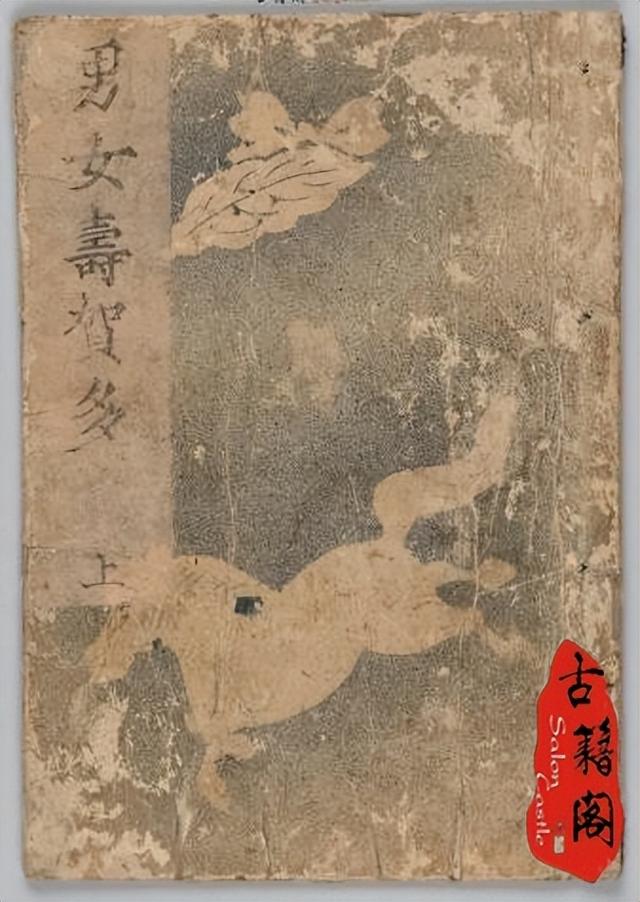 男女壽賀多
上
古籍阁
Salon Castle